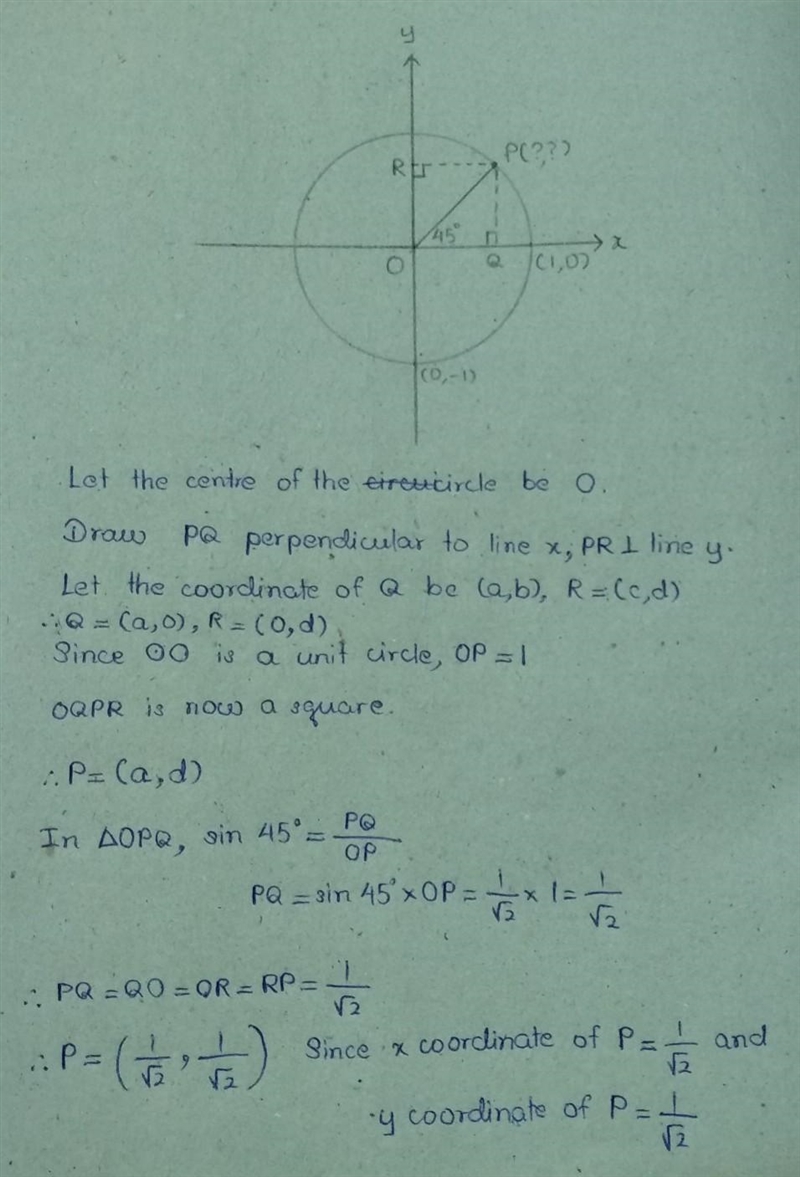 y
P(?,?)
R
45°
x
O
Q
(1,0)
(0,-1)
Let the centre of the circucircle be O.
Draw PQ perpendicular to line x, PR ⊥ line y.
Let the coordinate of Q be (a,b), R = (c,d)
∴ Q = (a,0), R = (0,d)
Since ⊙O is a unit circle, OP = 1
OQPR is now a square.
∴ P = (a,d)
In △OPQ, sin 45° = PQ/OP
PQ = sin 45° × OP = 1/√2 × 1 = 1/√2
∴ PQ = QO = OR = RP = 1/√2
∴ P = (1/√2, 1/√2) Since x coordinate of P = 1/√2 and
y coordinate of P = 1/√2